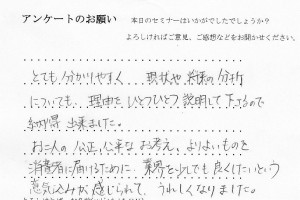 アンケートのお願い
本日のセミナーはいかがでしたでしょうか?
よろしければご意見、ご感想などをお聞かせください。
とても分かりやすく 現状や将来の分析
についても、理由をひとつひとつ説明して下さるので
納得出来ました。
お二人の公正、公平なお考え、よりよいものを
消費者に届けるために 業界を少しでも良くしたいという
意気込みが感じられて、うれしくなりました。